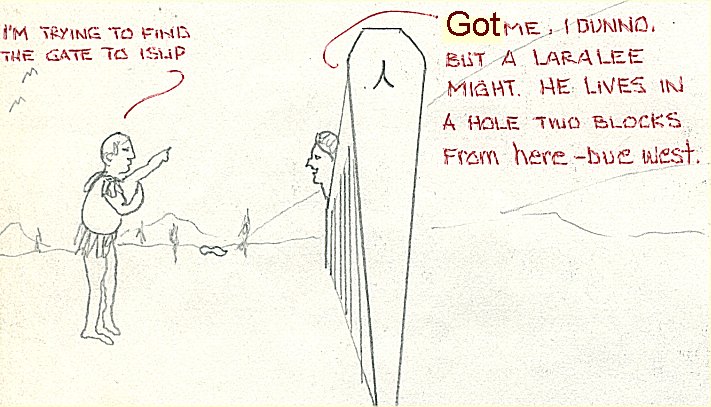 I'M TRYING TO FIND
THE GATE TO ISLIP
Got ME, I DUNNO.
BUT A LARALEE
MIGHT. HE LIVES IN
A HOLE TWO BLOCKS
From here - DUE WEST.